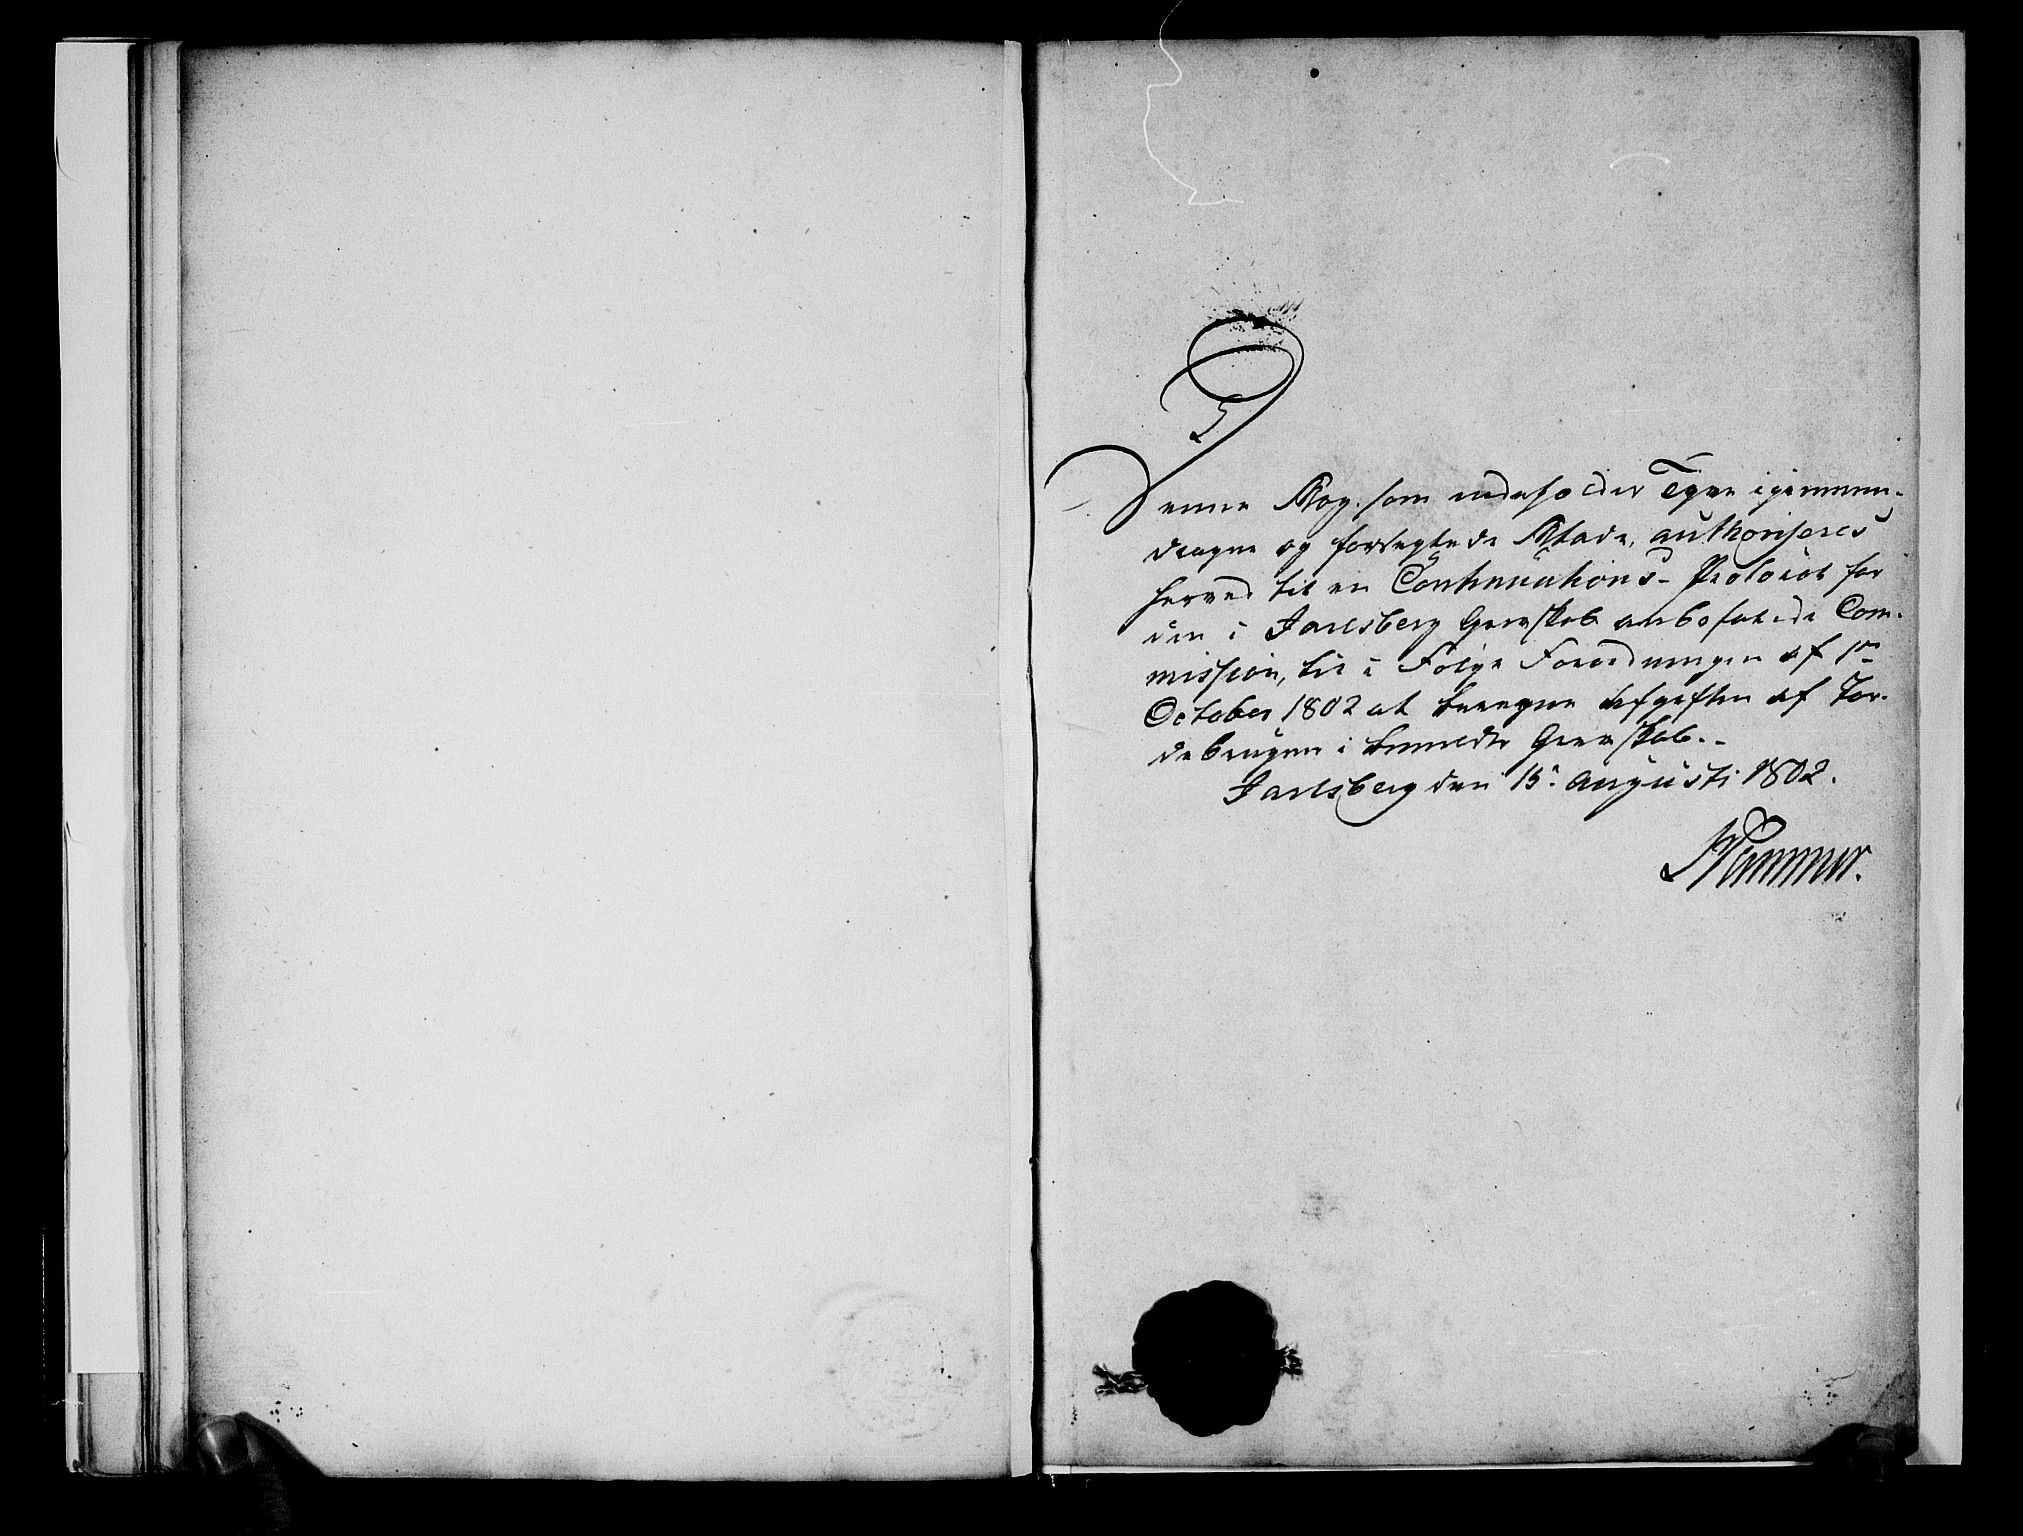 Denne Bog, som indeholder Tyve igiennem-
dragne og forseglede Blade, authoriseres
herved til en Continuations-Protocol for
den i Jarlsberg Grevskab anbefalede Com-
mission, til i Følge Forordningen af 1te
October 1802 at beregne Afgiften af Jor-
debrugen i bemeldte Grevskab.-
Jarlsberg den 15de Augusti 1802.
Hammer.